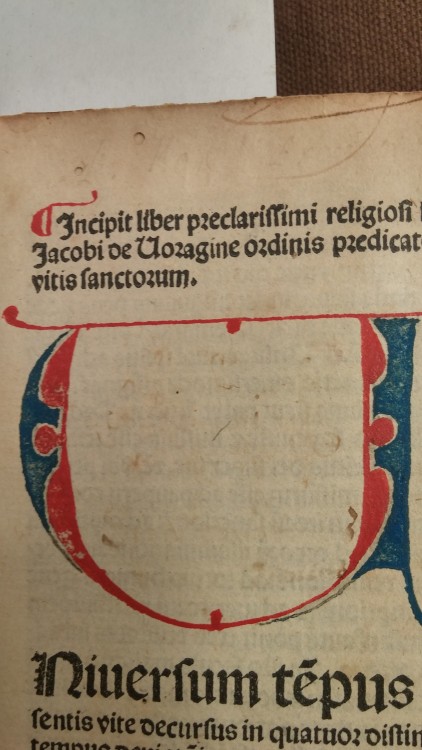 Incipit liber preclariſſimi religioſi
Jacobi de Uoragine ordinis predicat
vitis ſanctorum.
U
Niuerſum tēpus
ſentis vite decurſus in quatuor diſtin
tempus